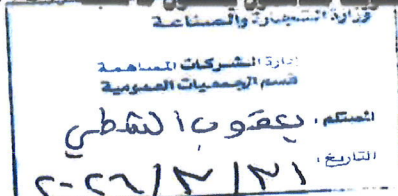 وزارة التجارة والصناعة
إدارة الشركات المساهمة
قسم الجمعيات العمومية
المستلم: يعقوب النقطي
التاريخ: ٢٠٢٦/٣/٣١